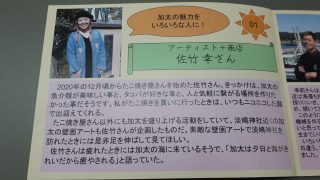 加太の魅力を
いろいろな人に!
01
アーティスト+商店
佐竹 幸さん
2020年の12月頃からたこ焼き屋さんを始めた佐竹さん。きっかけは、加太の
魚介類が美味しい事と、タコパが好きな事と、人と気軽に繋がる場所を作りた
かった事だそうです。私がたこ焼きを買いに行ったときは、いつもニコニコした顔
で出迎えてくれる。
たこ焼き屋さん以外にも加太を盛り上げる活動をしていて、淡嶋神社近くの加
太の壁画アートも佐竹さんが企画したものだ。素敵な壁画アートで淡嶋神社を
訪れたときには是非足を伸ばして見てほしい。
佐竹さんは疲れたときには加太の海に来ているそうで、「加太は夕日と海がき
れいだから癒やされる」と語っていた。